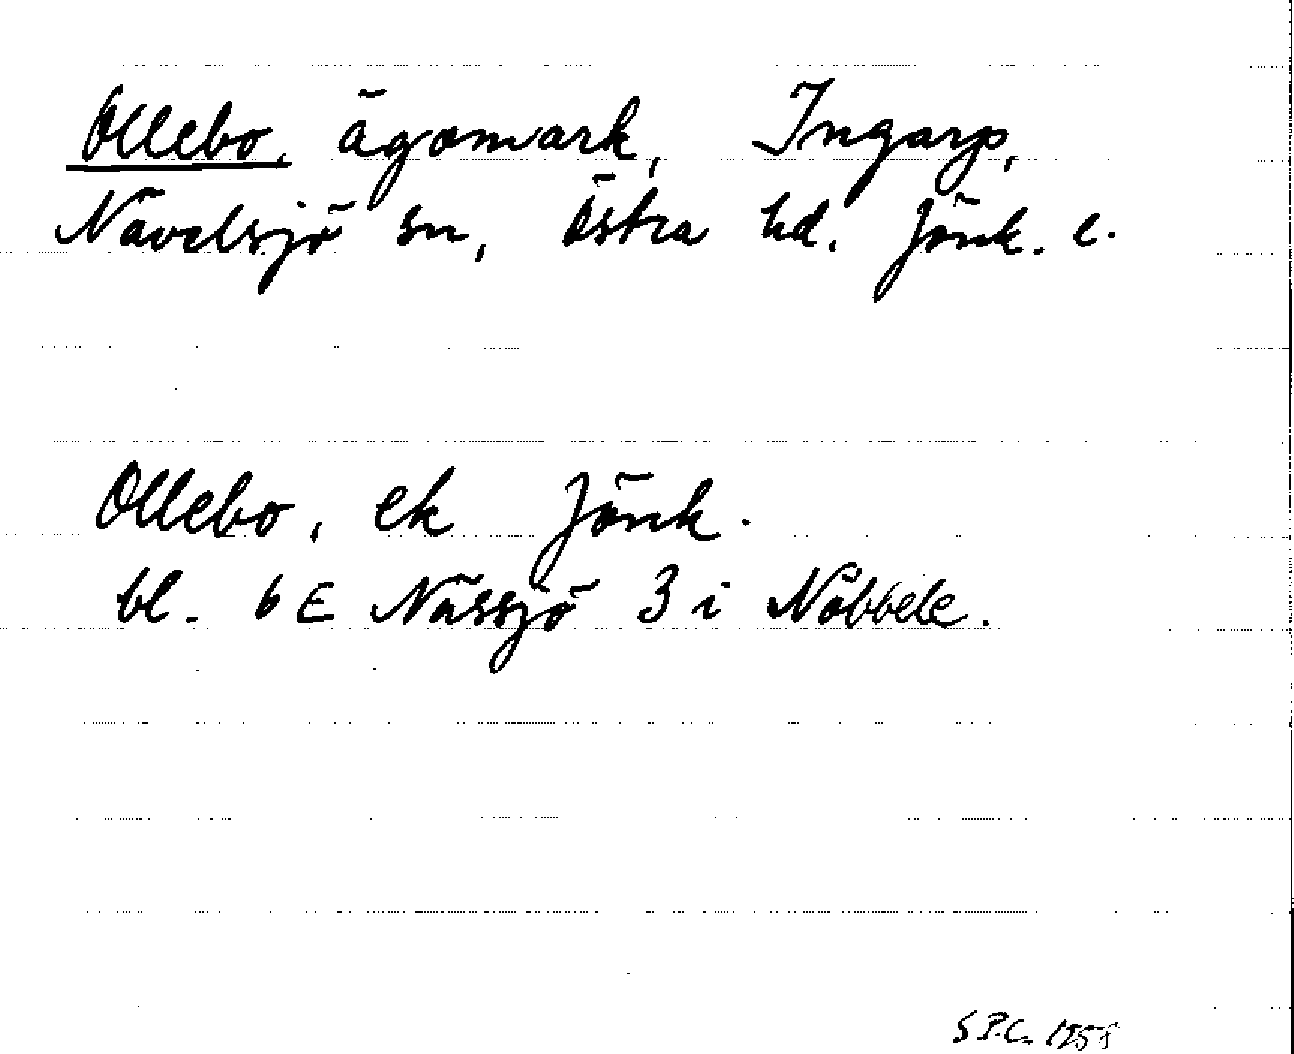 Ollebo, ägomark, Ingarp,
Nävelsjö sn, Östra hd. Jönk. l.
Ollebo, ek Jönk.
bl. 6 E Nässjö 3 i Nöbbele.
S.P.C. 1958